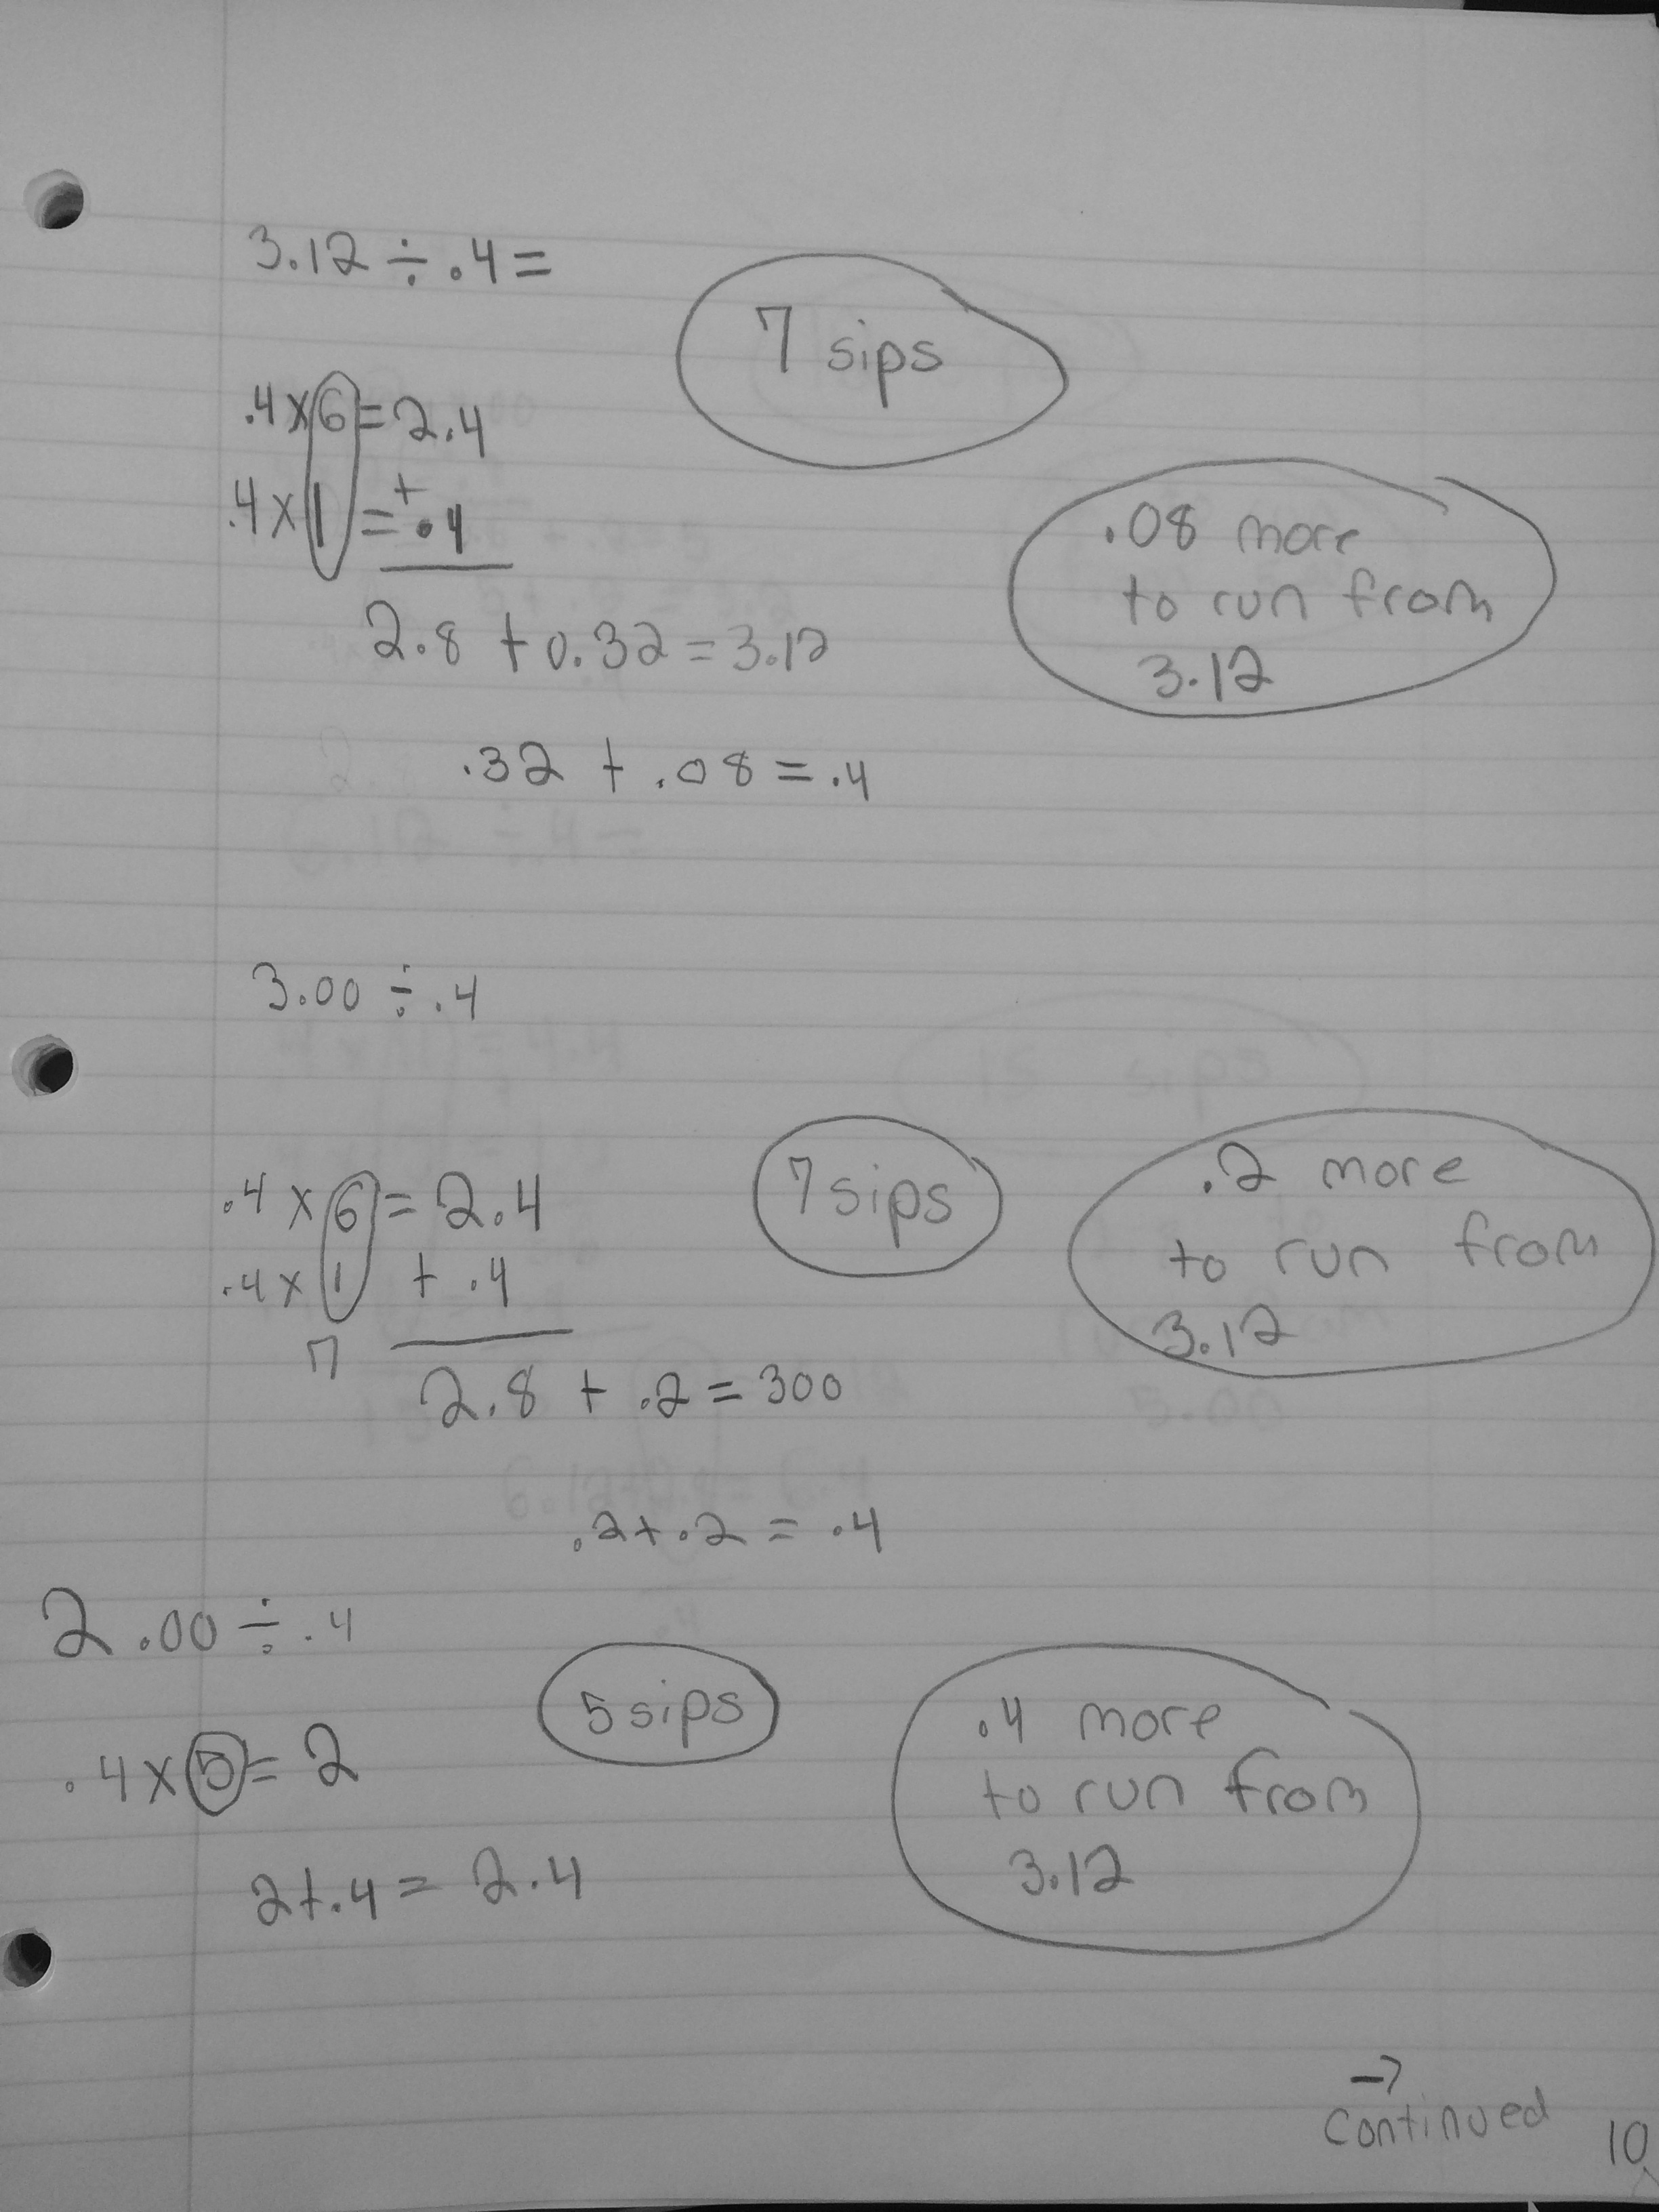 3.12 ÷ .4 =
7 sips
.4 x 6 = 2.4
.4 x 1 = + .4
.08 more
to run from
3.12
2.8 + 0.32 = 3.12
.32 + .08 = .4
3.00 ÷ .4
.4 x 6 = 2.4
.4 x 1 + .4
7
7 sips
.2 more
to run from
3.12
2.8 + .2 = 300
.2 + .2 = .4
2.00 ÷ .4
5 sips
.4 x 5 = 2
.4 more
to run from
3.12
2 + .4 = 2.4
→
Continued
10